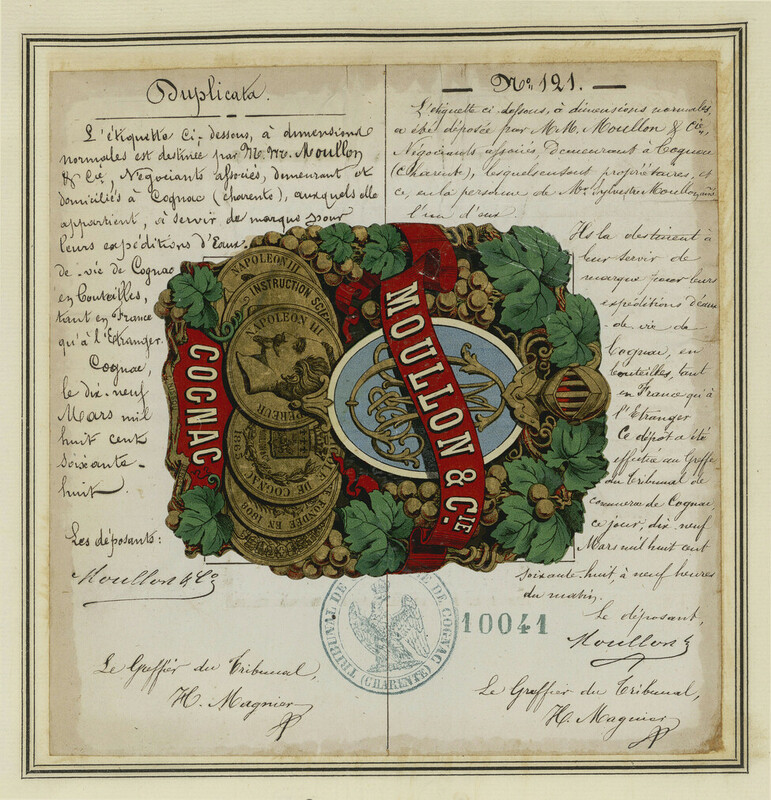 Duplicata.
L'étiquette ci-dessous, à dimensions
normales est destinée par M.M. Moullon
& Cie, Négociants associés, demeurant et
domiciliés à Cognac (charente), auxquels elle
appartient, à servir de marque pour
leurs expéditions d'Eaux-
de-vie de Cognac
en bouteilles,
tant en France
qu'à l'Etranger.
Cognac,
le dix-neuf
Mars mil
huit cent
soixante-
huit.
Les déposants:
Moullon & Co
Le Greffier du Tribunal,
H. Magnier
No. 121.
L'étiquette ci-dessous, à dimensions normales,
a été déposée par M.M. Moullon & Cie,
Négociants associés demeurant à Cognac
(Charente), lesquels en sont propriétaires, et
ce, en la personne de Mr. Sylvestre Moullon,
l'un d'eux.
Ils la destinent à
leur servir de
marque pour leurs
expéditions d'eaux
de vie de
Cognac, en
bouteilles, tant
en France qu'à
l'Etranger
Ce dépôt a été
effectué au Greffe
du Tribunal de
commerce de Cognac,
ce jour, dix neuf
Mars mil huit cent
soixante huit, à neuf heures
du matin.
Le déposant,
Moullon
Le Greffier du Tribunal,
H. Magnier
NAPOLEON III
INSTRUCTION SCIE
NAPOLEON III
EMPEREUR
COGNAC
MOULLON & CIE
DE COGNAC
FONDÉE EN
TRIBUNAL DE
DE COGNAC
(CHARENTE)
10041